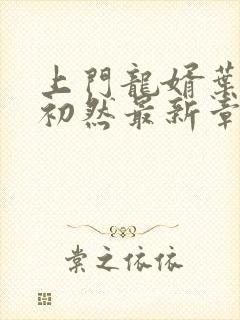 上門龍婿葉
初然最新章
棠之依依